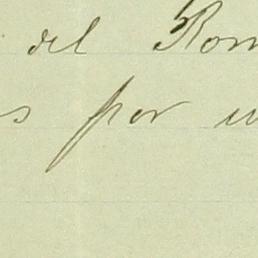 del Rom
s por u